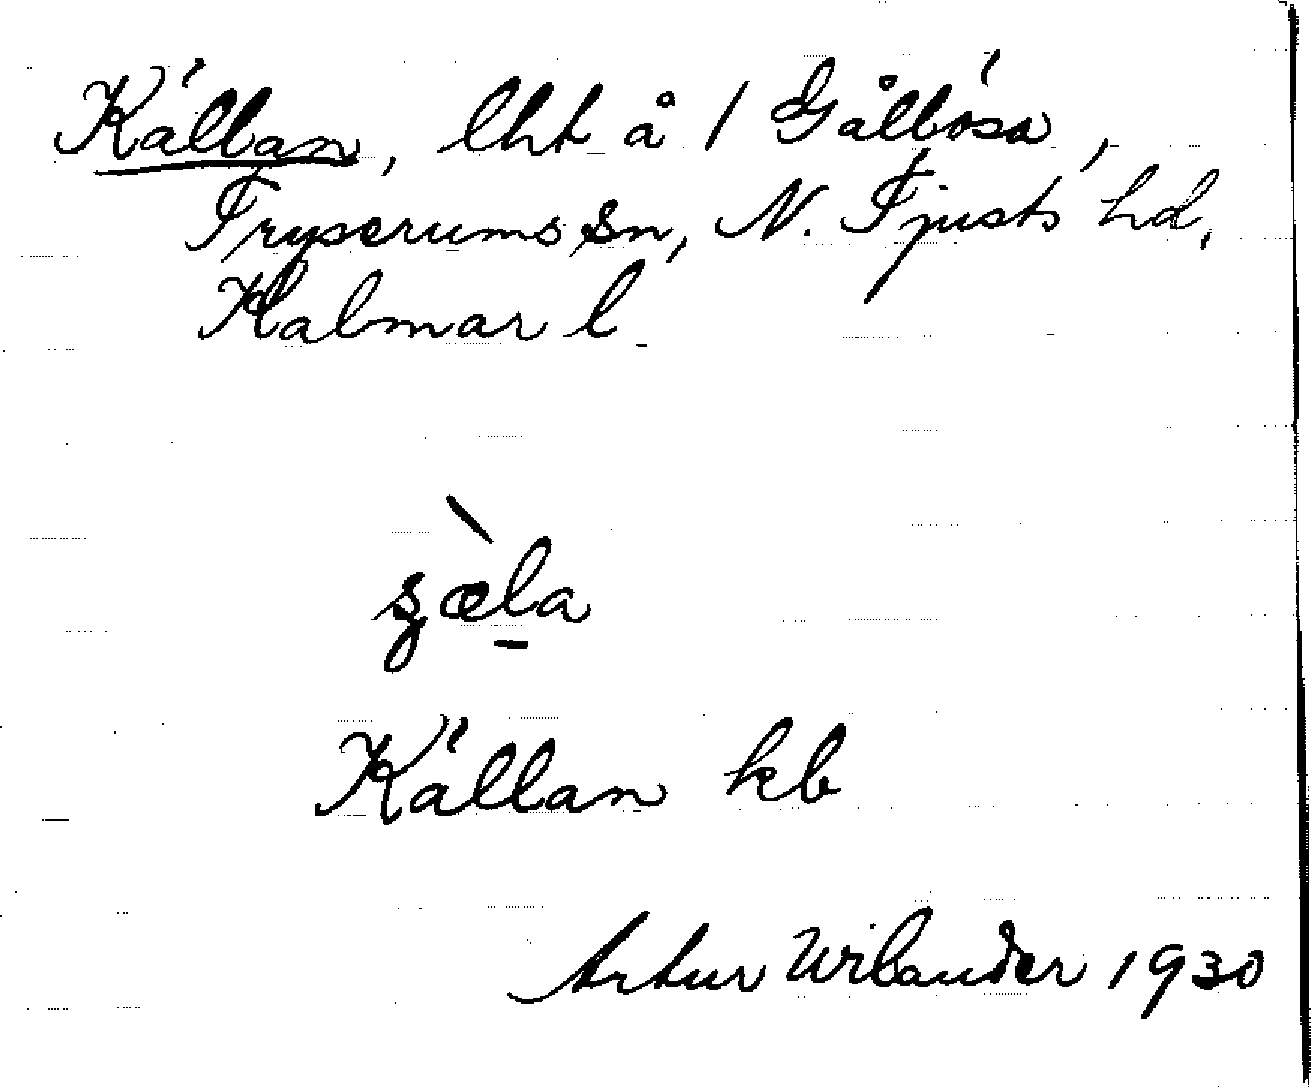 Källan, lht å 1 Gålösa,
Tryserums sn, N. Tjusts hd,
Kalmar l.
sæ̀la
Källan kb
Artur Wilander 1930